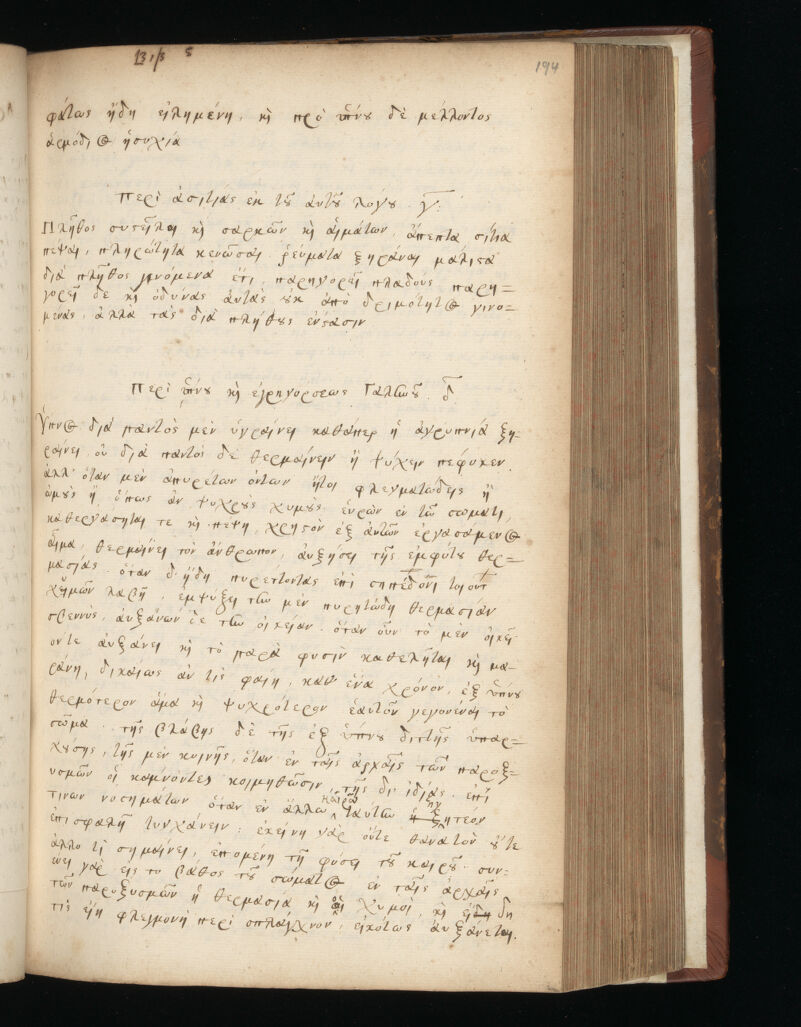 131/3 8
194
φάτως ἤδη εἰλημένη, κὴ πρὸ ὕπνου δὲ μέλλοντος
ἁρμόδιος ἡσυχία
Περὶ ἀσιτίας ἐκ τοῦ αὐτοῦ λόγου. γ:
Πλῆθος συστεῖλαι κὴ σαρκῶν κὴ αἱμάτων, ἄπεπτα σιτία
πέψαι, πληρώτητα κενῶσαι. ῥεύματα ξηράναι μάλιστα
διὰ πλῆθος γινόμενα ἔτι, παρηγορεῖ πλάδους παρη=
γορεῖ δὲ κὴ ὀδύνας αὐτὰς οὐκ ἀπὸ δριμότητος γινο=
μένας, ἀλλὰ τὰς διὰ πλήθους ἐνστασιν
Περὶ ὕπνου κὴ ἐγρηγόρσεως Γαλινοῦ. δ
Ὕπνος διὰ παντὸς μὲν ὑγραίνει καθάπερ ἡ ἀγρυπνία ξη-
ραίνει, οὐ διὰ παντὸς δὲ θερμαίνειν ἢ ψύχειν πέφυκεν.
ἀλλ' ὅταν μὲν ἀπυρέτων ὄντων ἤτοι φλεγματώδεις ἢ
ὠμοὺς ἢ ὅπως ἂν ψυχροὺς χυμοὺς εὑρὼν ἐν τῷ σώματι,
κατεργάσηται τε κὴ πέψῃ, χρηστὸν ἐξ αὐτῶν ἐργασάμενος
αἷμα, θερμαίνει τὸν ἄνθρωπον, αὐξήσει τῆς ἐμφύτου θερ=
μασίας. ὅταν δ' ἤδη πυρέττοντας ἐπὶ σηπεδόνι τοιούτ
χυμῶν λάβῃ, ἐμψύξει τὴν μὲν πυρετώδη θερμασίαν
σβεννύς, αὐξάνων δὲ τὴν οἰκείαν. ὅταν οὖν τὸ μὲν οἰκεῖ-
ον τε αὐξάνει κὴ τὸ παρὰ φύσιν καθελῆται κὴ μα-
ράνῃ, δικαίως ἄν τις φαίη, καθ' ἕνα χρόνον, ἐξ ὕπνου
θερμότερον ἅμα κὴ ψυχρότερον ἑαυτοῦ γεγονέναι τὸ
σῶμα. τῆς βλάβης δὲ τῆς ἐξ ὕπνου διττῆς ὑπαρ-
χούσης, τῆς μὲν κοινῆς, ὅταν ἐν ταῖς ἀρχαῖς τῶν παροξ-
υσμῶν οἱ κάμνοντες κοιμηθῶσιν, τῆς δὲ ἰδίας. ἐπί
τινων νοσημάτων ὅταν ἐν ἄλλῳ καιρῷ, ταύτην ητεον
ἐπισφαλῆ τυγχάνειν: ἐκείνη γὰρ οὔτε θάνατον οὔτε
ἄλλο τι σημαίνει, ἑπομένη τῇ φύσει τοῦ καιροῦ. συν-
ιει γὰρ εἰς τὸ βάθος τοῦ σώματος ἐν ταῖς ἀρχαῖς
τῶν παροξυσμῶν ἡ θερμασία κὴ οἱ χυμοί, κὴ εἰ δή
τις εἴη φλεγμονὴ περὶ σπλάγχνον, εἰκότως αὐξάνεται.